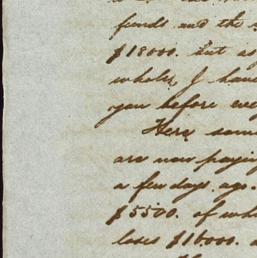 funds and the
$18000. but as
whole, I have
you before eve
Here some
are now paying
a few days ago.
$5500. of wh
loses $16000.